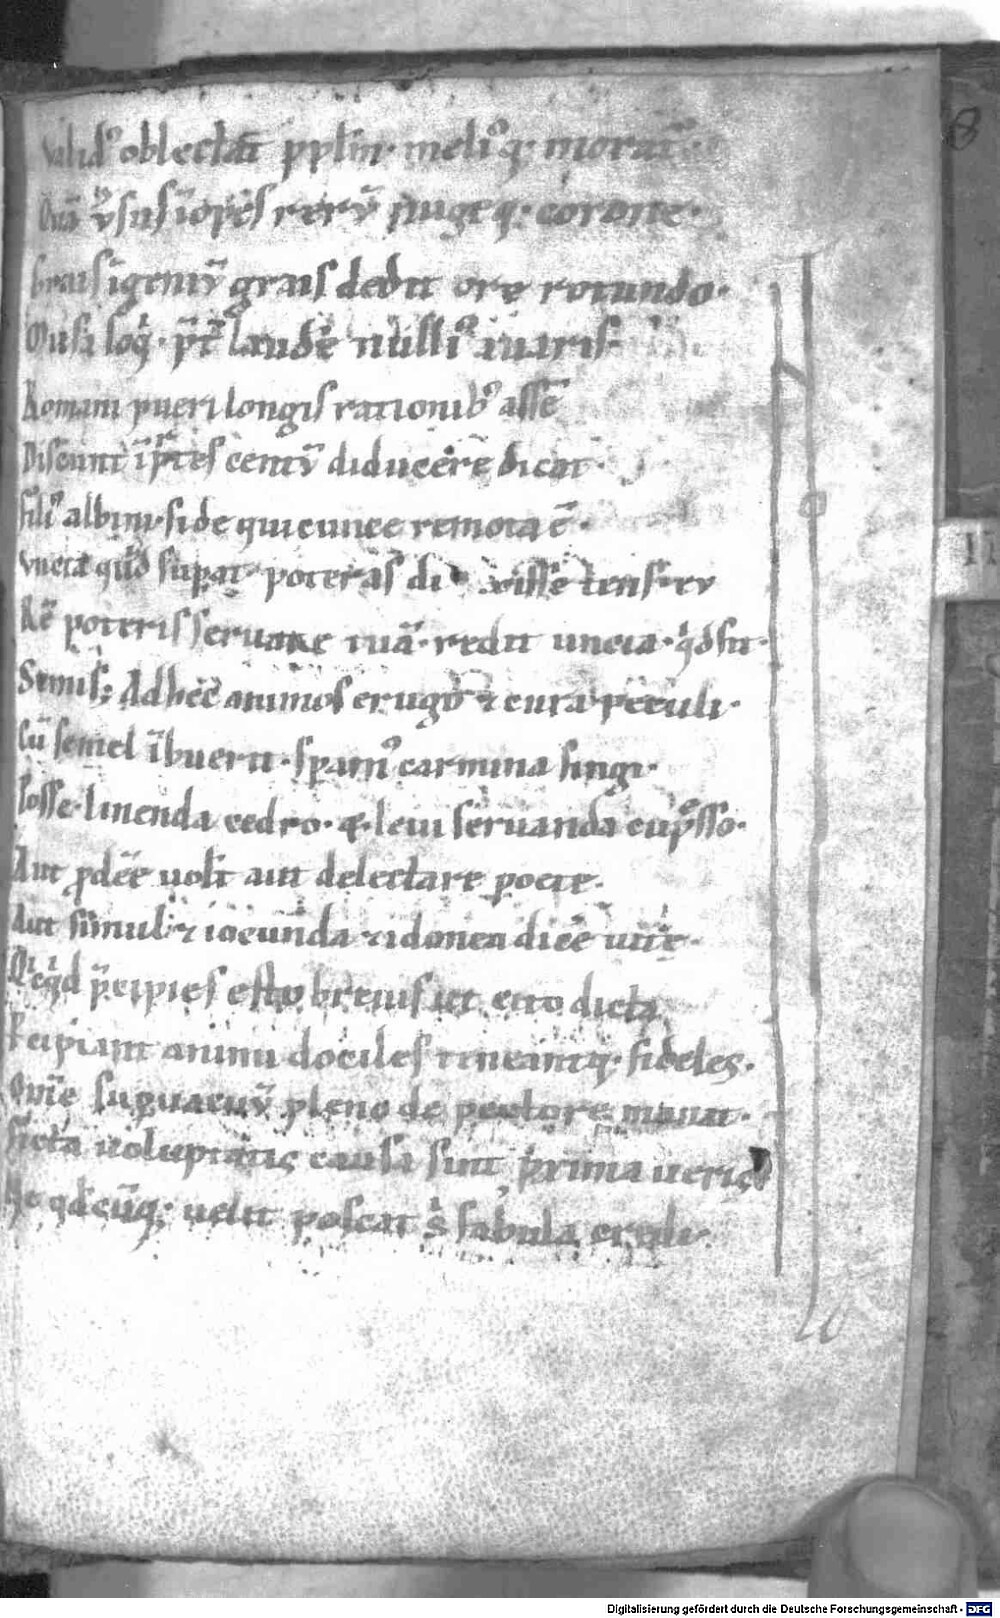 Valid᷒ oblectat̄ pplm̄· meli᷒q;· morat̄·
Quā v̄sus īopēs rerū̄ nugeq;· corone·
Grais īgeniū̄ grais dedit ore rotundo·
Musa loqͥ· p̄t̄ laudē nulli᷒ auaris·
Romani pueri longis rationib᷒ assē
Discunt ī partes centū̄ diducere dicat·
Fili᷒ albini· side quicunce remota ē·
Vncia qͥd supat· poteras di xisse triens· ev
Rē poteris seruare tuā· redit uncia· qͥd fit·
Semis; Ad hec animos erugo ⁊ cura peculi·
Cū semel ībuerit· speram᷒ carmina fingi·
Posse· linenda cedro· ⁊ leui seruanda cupͤsso·
Aut ꝓdeē uolt̄ aut delectare poete·
Aut simul ⁊ iocunda ⁊ idonea diceē uite·
Qͥcqͥd p̄cipies esto breuis ut cito dicta
Percipiant animi dociles teneantq;· fideles·
Omē supuacuū̄ pleno de pectore manat·
Ficta uoluptatis causa sint prima ueris
Ne qdcūq;· uelit poscat sͥ fabula credi·
8
Digitalisierung gefördert durch die Deutsche Forschungsgemeinschaft - DFG